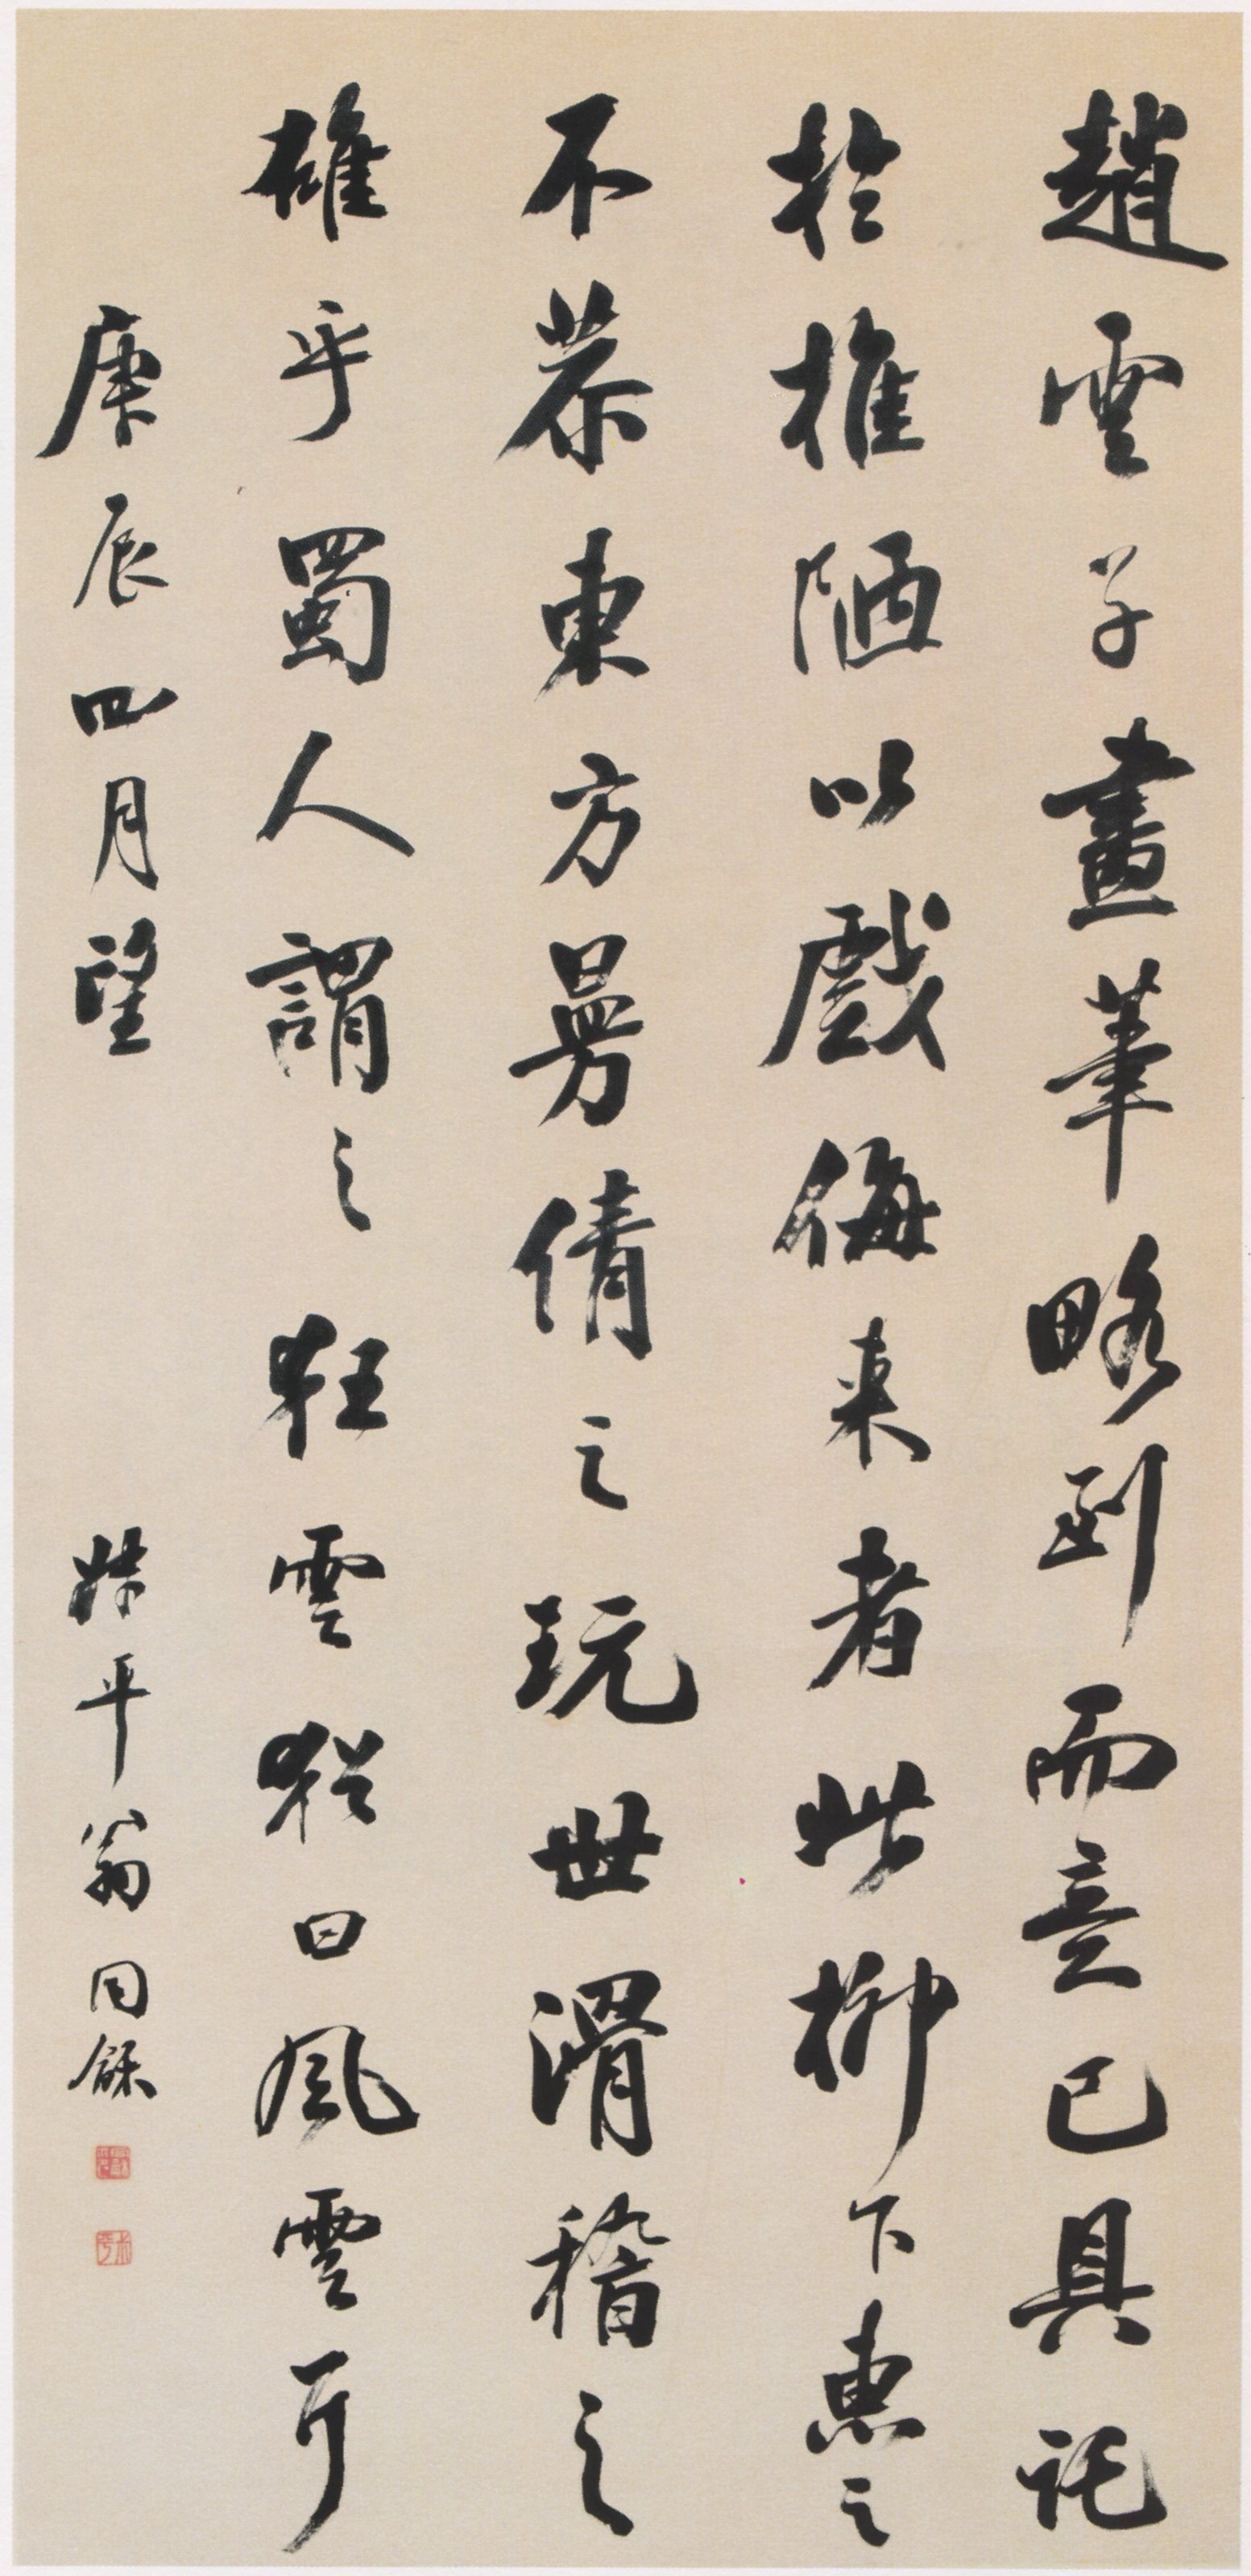 趙雲子畫筆略到而意已具託
於椎陋以戲侮來者此柳下惠之
不恭東方曼倩之玩世滑稽之
雄乎蜀人謂之狂雲猶曰風雲耳
庚辰四月望
姊平翁同龢